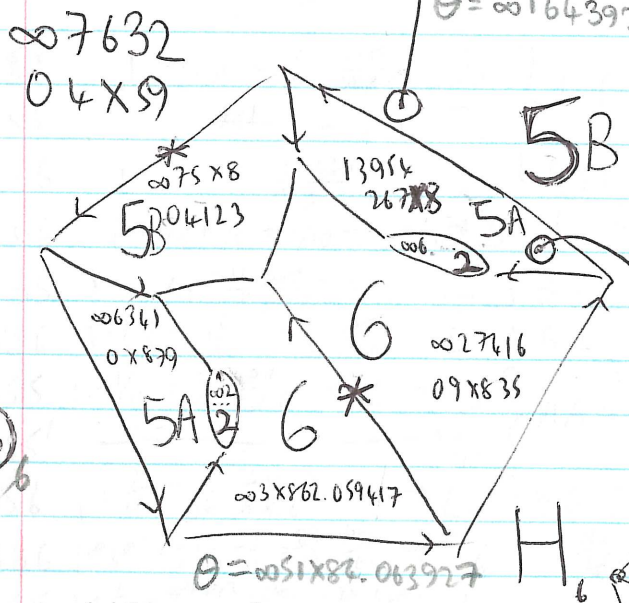 θ = ∞164393
∞7632
04X59
5B
∞75X8
04123
5B
13954
267X8
5A
∞6
2
∞6341
0X879
5A
∞2
2
6
∞27416
09X835
6
∞3X862.059417
6
θ = ∞51X84.063927
H
6